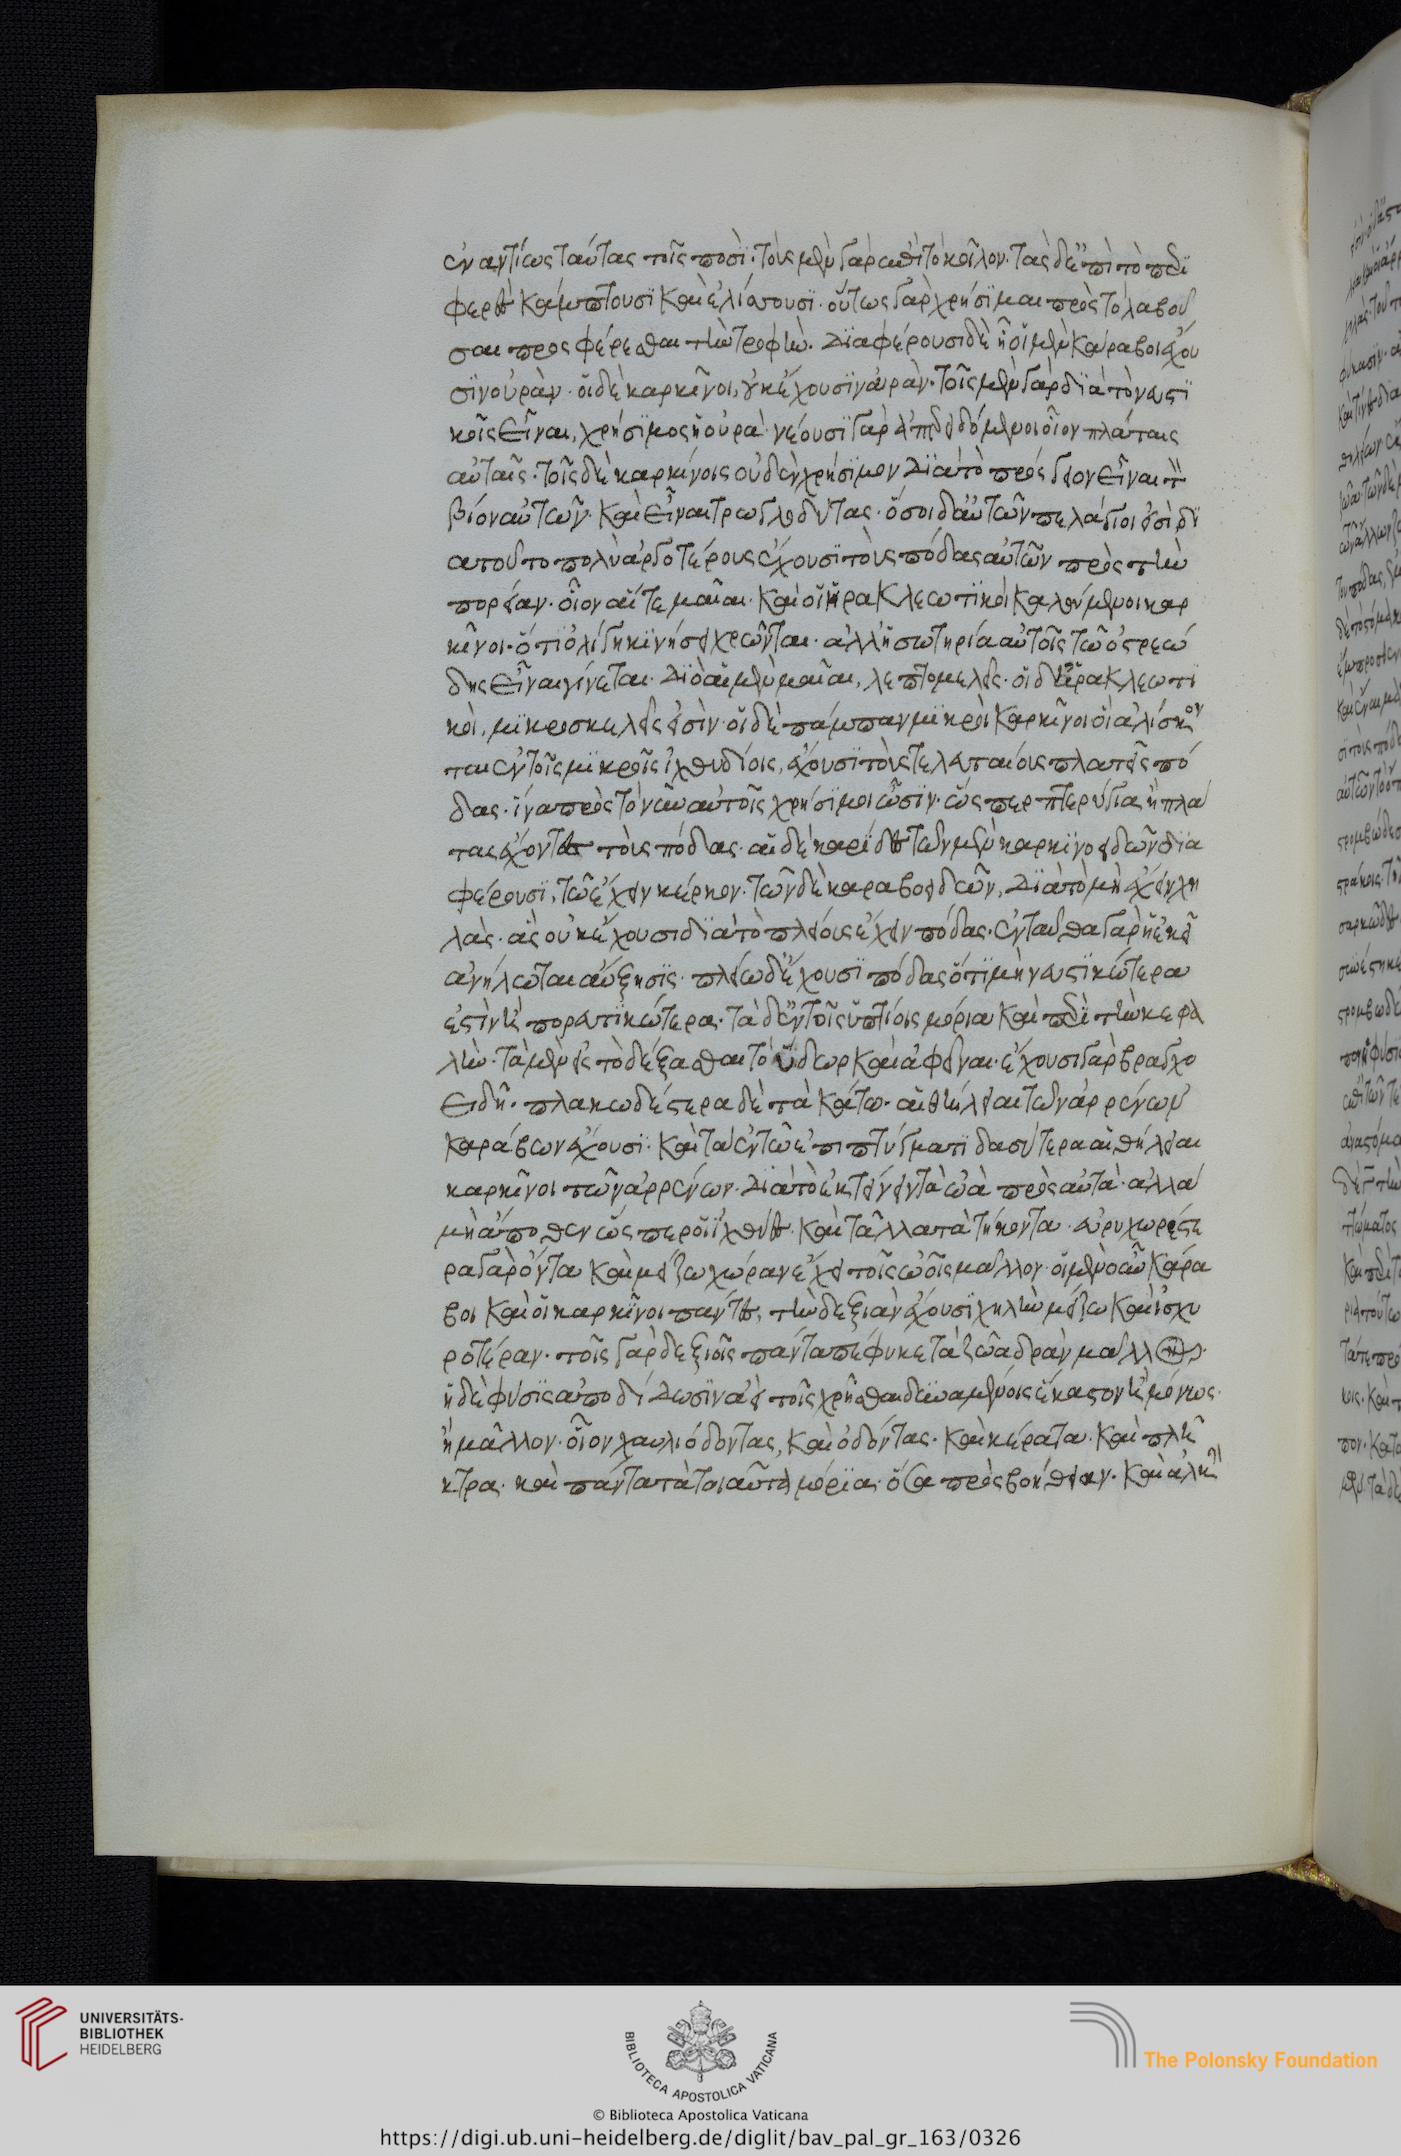 ἐναντίως ταύτας τοῖς ποσί· τοὺς μὲν γὰρ ἐπὶ τὸ κοῖλον· τὰς δ' ἐπὶ τὸ περι
φερὲς κάμπτουσι καὶ ἑλίττουσι· οὕτως γὰρ χρήσιμαι πρὸς τὸ λαβού
σαι προσφέρεσθαι τὴν τροφήν. Διαφέρουσι δὲ ᾗ οἱ μὲν κάραβοι ἔχου
σιν οὐρὰν· οἱ δὲ καρκῖνοι, οὐκ ἔχουσιν οὐράν· τοῖς μὲν γὰρ διὰ τὸ νευστι
κοῖς εἶναι, χρήσιμος ἡ οὐρά· νέουσι γὰρ ἀπερειδόμενοι οἷον πλάταις
αὐταῖς· τοῖς δὲ καρκίνοις οὐδὲν χρήσιμον διὰ τὸ πρόσγειον εἶναι τὸν
βίον αὐτῶν· καὶ εἶναι τρωγλοδύτας· ὅσοι δ' αὐτῶν πελάγιοι εἰσὶ δι
α τοῦτο πολὺ ἀργοτέρους ἔχουσι τοὺς πόδας αὐτῶν πρὸς τὴν
πορείαν· οἷον αἵ τε μαῖαι· καὶ οἱ ἡρακλεωτικοὶ καλούμενοι καρ
κῖνοι· ὅτι ὀλίγῃ κινήσει χρῶνται· ἀλλ' ἡ σωτηρία αὐτοῖς τῷ ὀστρεώ
δης εἶναι γίνεται· Διὸ αἱ μὲν μαῖαι, λεπτομελεῖς· οἱ δ' ἡρακλεωτι
κοὶ, μικροσκελεῖς εἰσὶν· οἱ δὲ πάμπαν μικροὶ καρκῖνοι οἳ ἁλίσκον
ται ἐν τοῖς μικροῖς ἰχθυδίοις, ἔχουσι τοὺς τελευταίους πλατεῖς πό
δας· ἵνα πρὸς τὸ νεῖν αὐτοῖς χρήσιμοι ὦσιν· ὥσπερ πτερύγια ἢ πλά
τας ἔχοντες τοὺς πόδας· αἱ δὲ καρίδες τῶν μὲν καρκινοειδῶν δια
φέρουσι, τῷ ἔχειν κέρκον· τῶν δὲ καραβοειδῶν, Διὰ τὸ μὴ ἔχειν χη
λάς· ἃς οὐκ ἔχουσι διὰ τὸ πλείους ἔχειν πόδας· ἐνταῦθα γὰρ ἡ ἐκεῖ
ἀνήλωται αὔξησις· πλείω δ' ἔχουσι πόδας ὅτι μὴ νευστικώτερα
ἐστὶν ἢ πορευτικώτερα· τὰ δ' ἐν τοῖς ὑπτίοις μόρια καὶ περὶ τὴν κεφα
λὴν· τὰ μὲν εἰς τὸ δέξασθαι τὸ ὕδωρ καὶ ἀφεῖναι· ἔχουσι γὰρ βραγχο
ειδῆ· πλακωδέστερα δὲ τὰ κάτω· αἱ θήλειαι τῶν ἀρρένων
καράβων ἔχουσι· καὶ τὰ ἐν τῷ ἐπιπτύγματι δασύτερα αἱ θήλειαι
καρκῖνοι τῶν ἀρρένων· Διὰ τὸ ἐκτείνειν τὰ ὠὰ πρὸς αὐτά· ἀλλὰ
μὴ ἄποθεν ὥσπερ οἱ ἰχθύες· καὶ τἆλλα τὰ τίκοντα· εὐρυχωρέστε
ρα γὰρ ὄντα καὶ μείζω χώραν ἔχει τοῖς ὠοῖς μᾶλλον· οἱ μὲν οὖν κάρα
βοι καὶ οἱ καρκῖνοι πάντες, τὴν δεξιὰν ἔχουσι χηλὴν μείζω καὶ ἰσχυ
ροτέραν· τοῖς γὰρ δεξιοῖς πάντα πέφυκε τὰ ζῷα δρᾶν μᾶλλον·
ἡ δὲ φύσις ἀποδίδωσιν ἀεὶ τοῖς χρῆσθαι δυναμένοις ἕκαστον ἢ μόνως·
ἢ μᾶλλον· οἷον χαυλιόδοντας, καὶ ὀδόντας· καὶ κέρατα· καὶ πλῆ
κτρα· καὶ πάντα τὰ τοιαῦτα μόρια· ὅσα πρὸς βοήθειαν· καὶ ἀλκήν
UNIVERSITÄTS-
BIBLIOTHEK
HEIDELBERG
BIBLIOTECA APOSTOLICA VATICANA
The Polonsky Foundation
© Biblioteca Apostolica Vaticana
https://digi.ub.uni-heidelberg.de/diglit/bav_pal_gr_163/0326